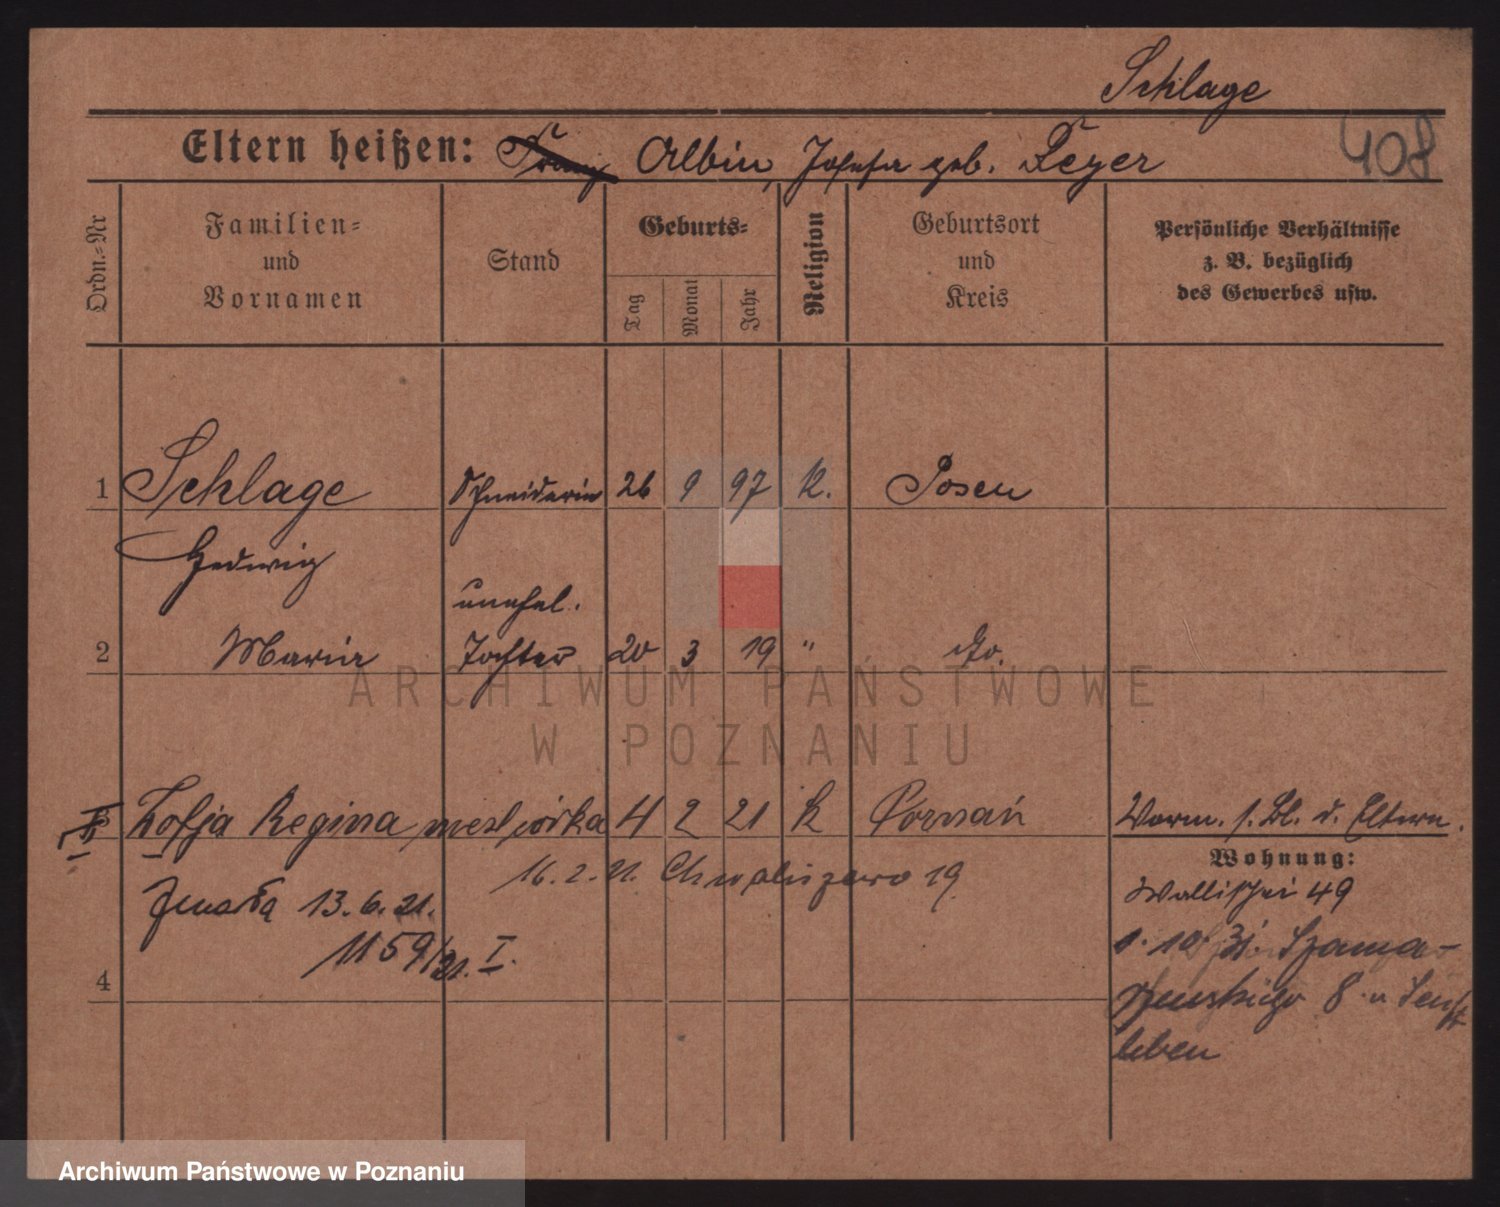 Schlage
408
Eltern heißen: Franz Albin, Josefa geb. Feyer
Ordn.-Nr
Familien-
und
Vornamen
Stand
Geburts-
Tag
Monat
Jahr
Religion
Geburtsort
und
Kreis
Persönliche Verhältnisse
z. B. bezüglich
des Gewerbes usw.
1 Schlage Schneiderin 26 9 97 K. Posen
Hedwig
unehel.
2 Maria Tochter 20 3 19 " do.
ARCHIWUM PAŃSTWOWE
W POZNANIU
Zofja Regina, 4 2 21 K Poznań Vorm. s. Bl. d. Eltern.
16.2.21. Chwaliszewo 19
Wohnung:
Zmarła 13.6.21. Wallischei 49
1159/21. I.
4
8
leben
Archiwum Państwowe w Poznaniu